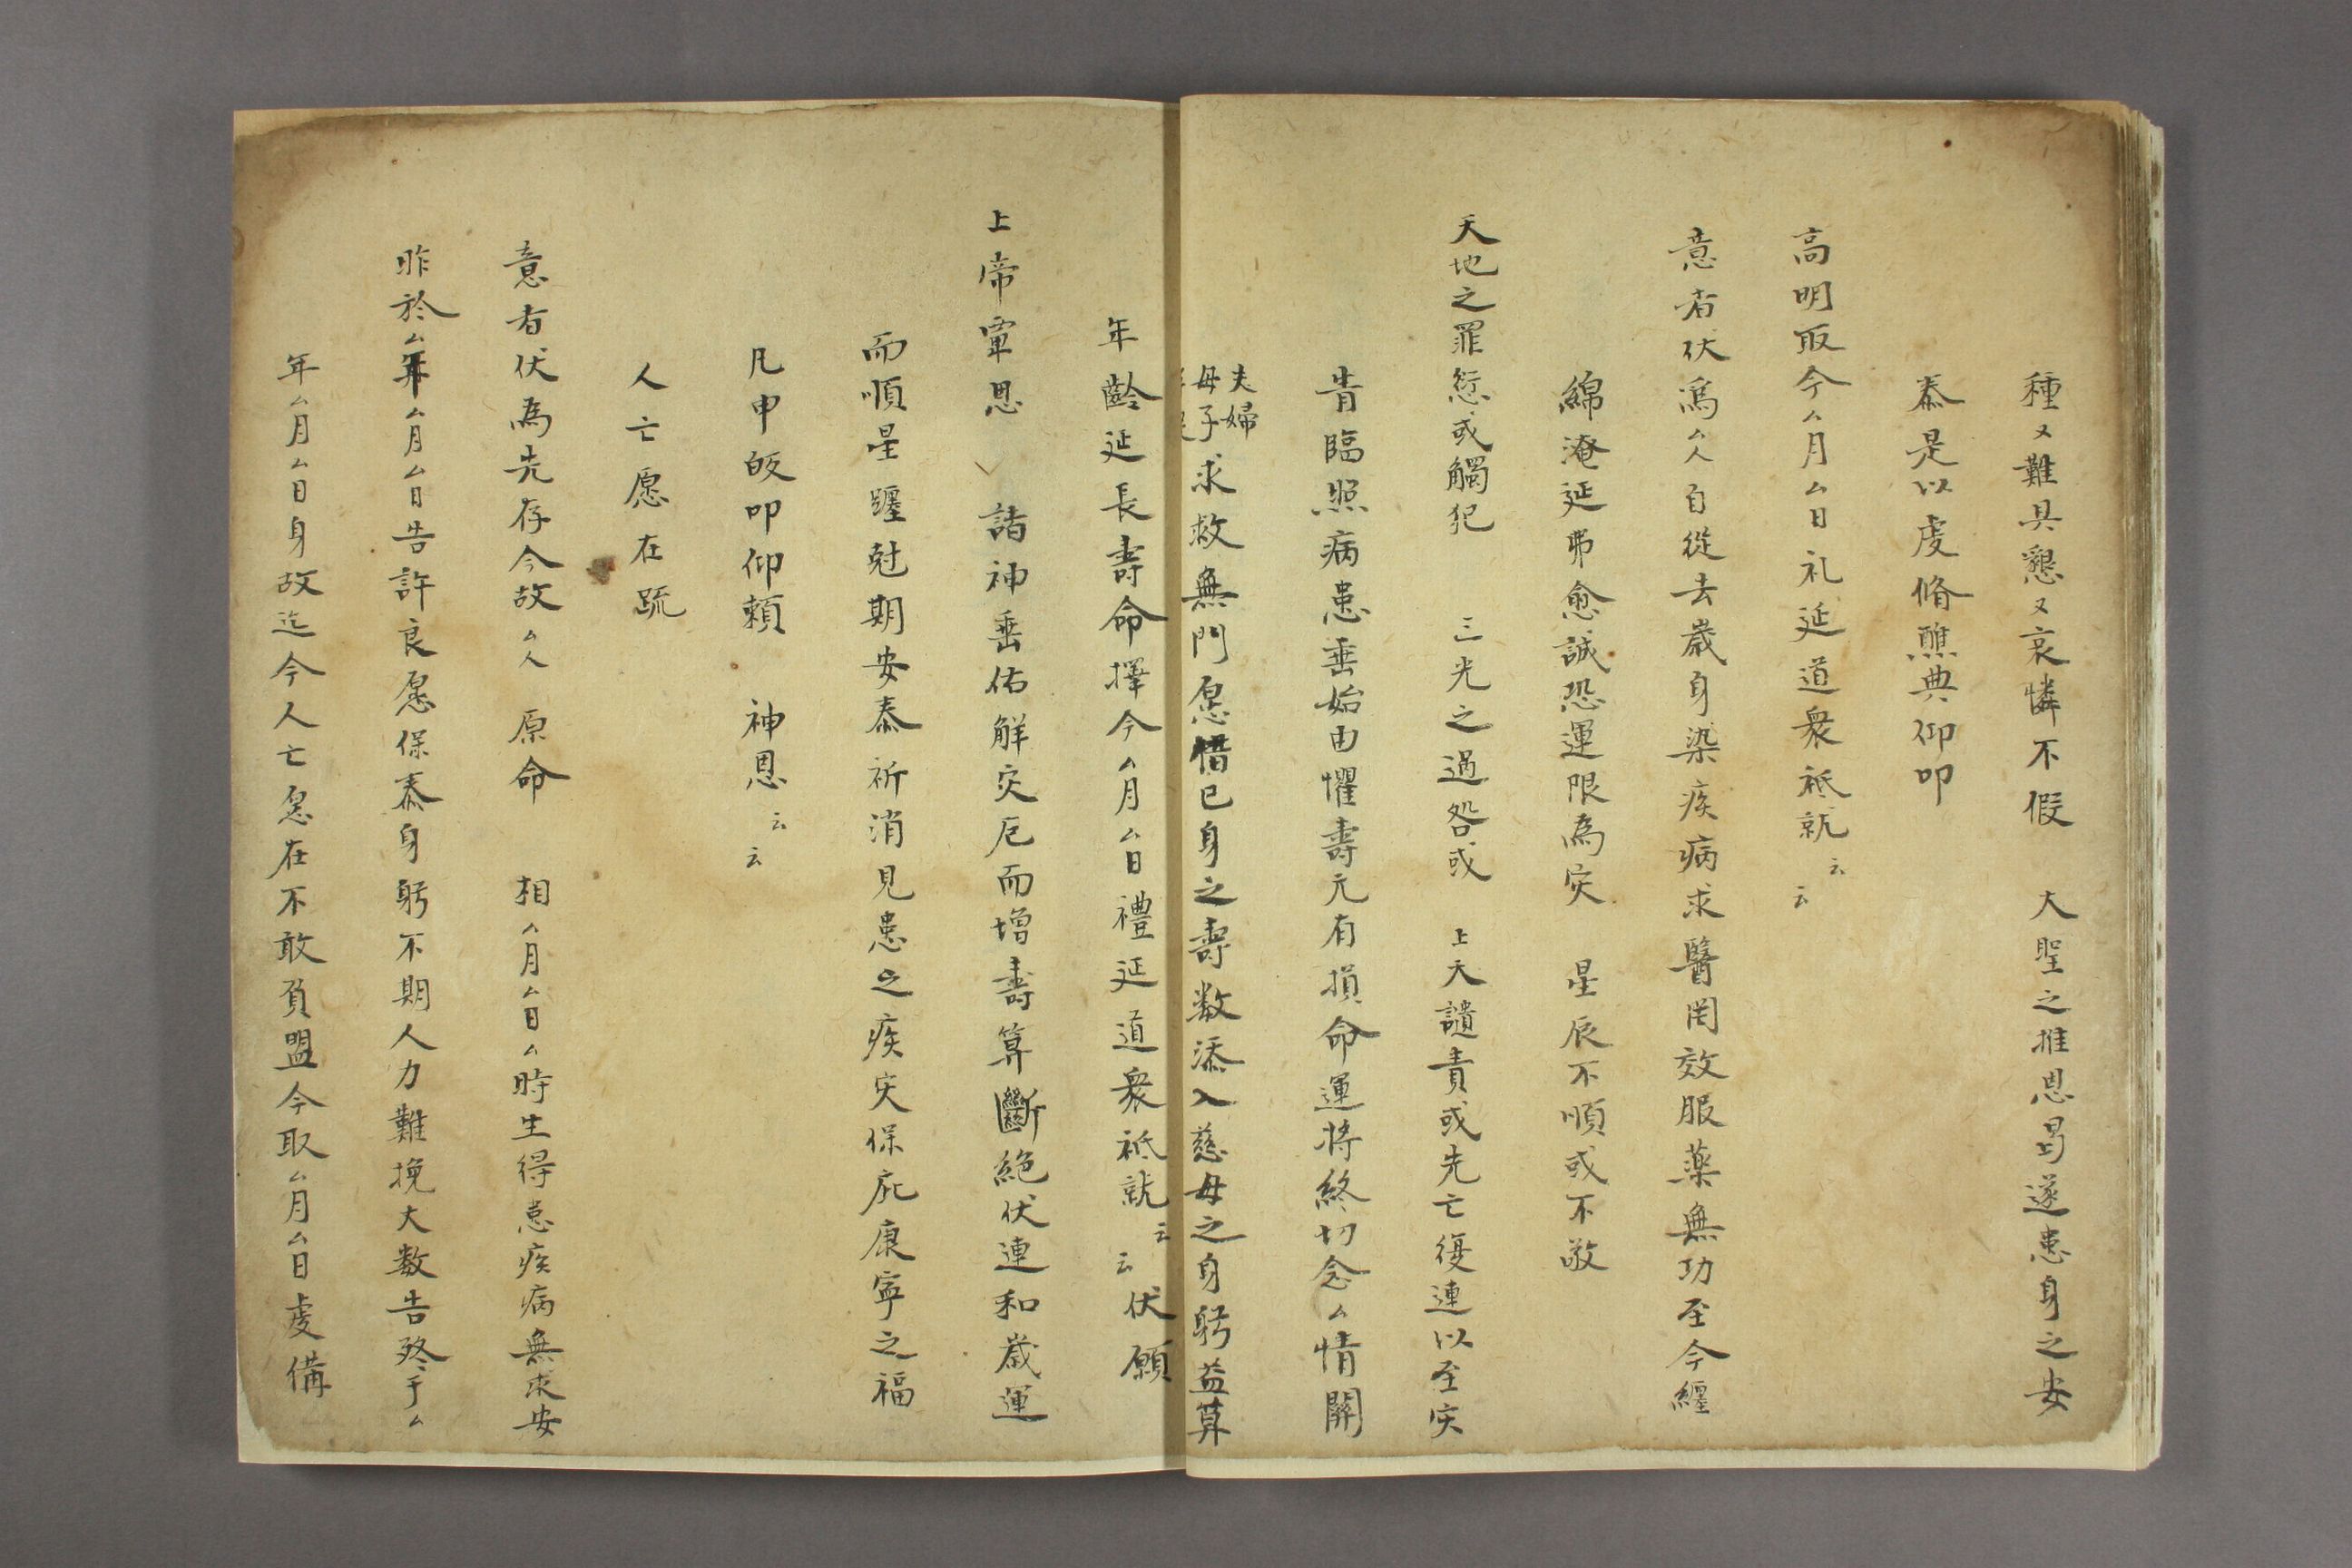 種々難具懇々哀憐不假　大聖之推恩曷遂患身之安
泰是以虔脩醮典仰叩
高明取今厶月厶日礼延道衆祗就云云
意者伏為厶人自從去歲身染疾病求醫罔效服藥無功至今纏
綿淹延弗愈誠恐運限為灾　星辰不順或不敬
天地之罪愆或觸犯　三光之過咎或　上天譴責或先亡復連以至灾
眚臨照病患垂始由懼壽元有損命運將終切念厶情關
夫婦母子求救無門愿借已身之壽数添入慈母之身躬益算
年齡延長壽命擇今厶月厶日禮延道衆祗就云云伏願
上帝覃恩　諸神垂佑解灾厄而增壽算斷絕伏連和歲運
而順星躔尅期安泰祈消見患之疾灾保庇康寧之福
凡申皈叩仰賴　神恩云云
人亡愿在疏
意者伏為先存今故厶人　原命　相厶月厶日厶時生得患疾病無求安
昨於厶年厶月厶日告許良愿保泰身躬不期人力難挽大数告終于厶
年厶月厶日身故迄今人亡愿在不敢負盟今取厶月厶日虔備